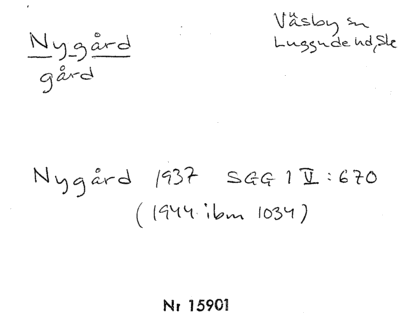 Nygård
gård
Väsby sn
Luggude hd, Sk
Nygård 1937 SGG 1 V : 670
(1944 ibm 1034)
Nr 15901